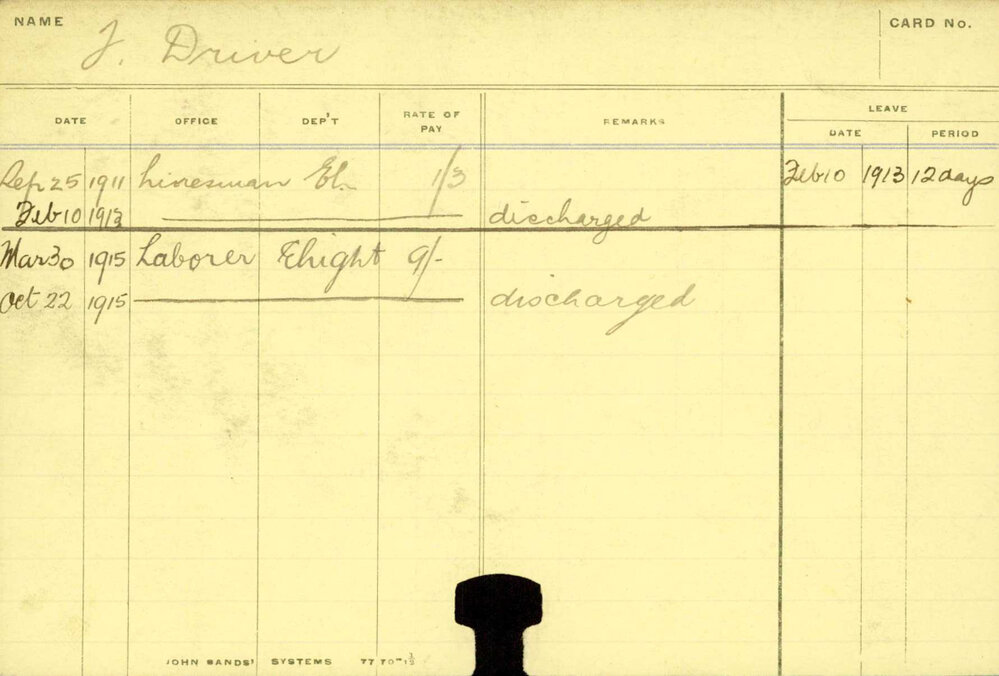 NAME
J. Driver
CARD No.
DATE OFFICE DEP'T RATE OF PAY REMARKS LEAVE
DATE PERIOD
Sep 25 1911 Linesman El. 1/3 Feb 10 1913 12 days
Feb 10 1913 discharged
Mar 30 1915 Laborer Elight 9/-
Oct 22 1915 discharged
JOHN SANDS' SYSTEMS